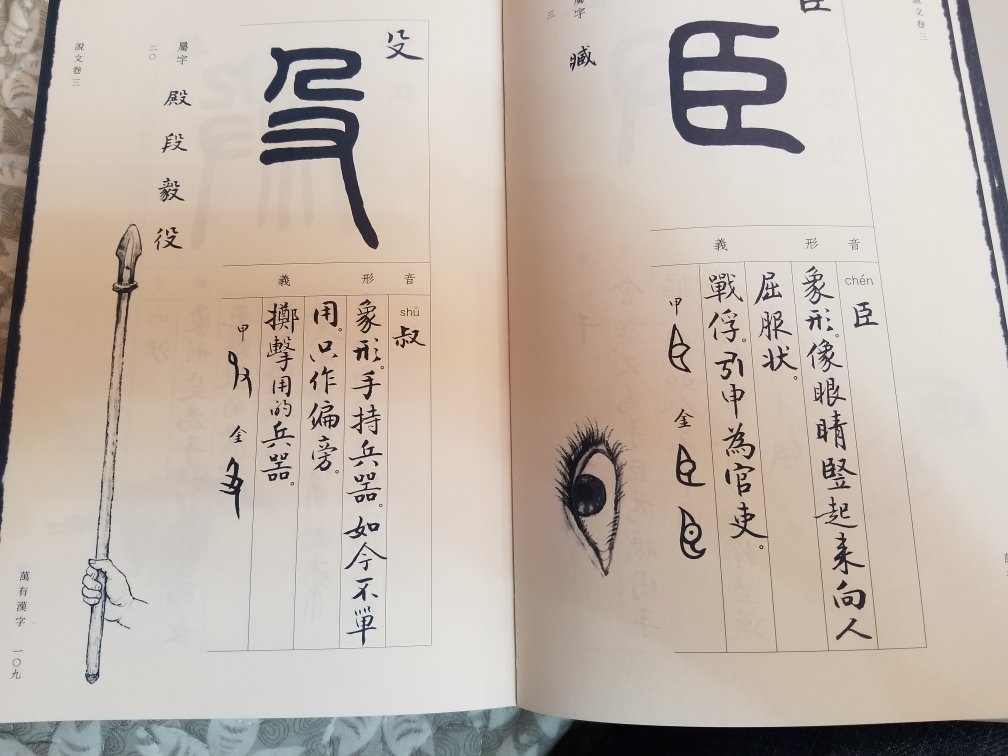 文卷三
臣
臣
屬字
三
臧
音
chén
臣
形
象形。像眼睛豎起来向人
屈服状。
義
戰俘。引申為官吏。
甲
金
殳
殳
屬字
二〇
殿 段 毅 役
說文卷三
音
shū
叔
形
象形。手持兵器。如今不單
用。只作偏旁。
義
擲擊用的兵器。
甲
金
萬有漢字 一〇九